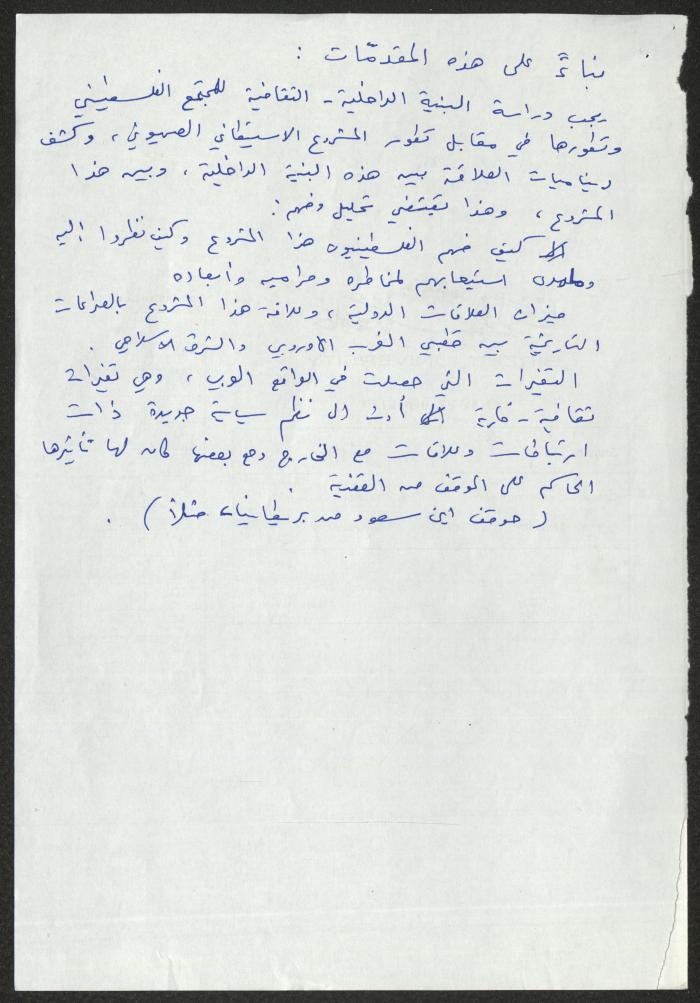 بناءً على هذه المقدمّات :
يجب دراسة البنية الداخلية - الثقافية للمجتمع الفلسطيني
وتطورها في مقابل تطور المشروع الاستيطاني الصهيوني ، وكشف
ديناميات العلاقة بين هذه البنية الداخلية ، وبين هذا
المشروع ، وهذا يقتضي تحليل وفهم :
كيف فهم الفلسطينيون هذا المشروع وكيف نظروا إليه
ومدى استيعابهم لمخاطره ومراميه وأبعاده
ميزان العلاقات الدولية ، وعلاقة هذا المشروع بالصراعات
التاريخية بين قطبي الغرب الأوروبي والشرق الاسلامي .
التغيرات التي حصلت في الواقع العربي ، وهي تغيرات
ثقافية - فكرية أدت الى نظم سياسية جديدة ذات
ارتباطات وعلاقات مع الخارج ومع بعضها كان لها تأثيرها
الحاكم على الموقف من القضية .
( موقف ابن سعود من بريطانيا مثلاً ) .